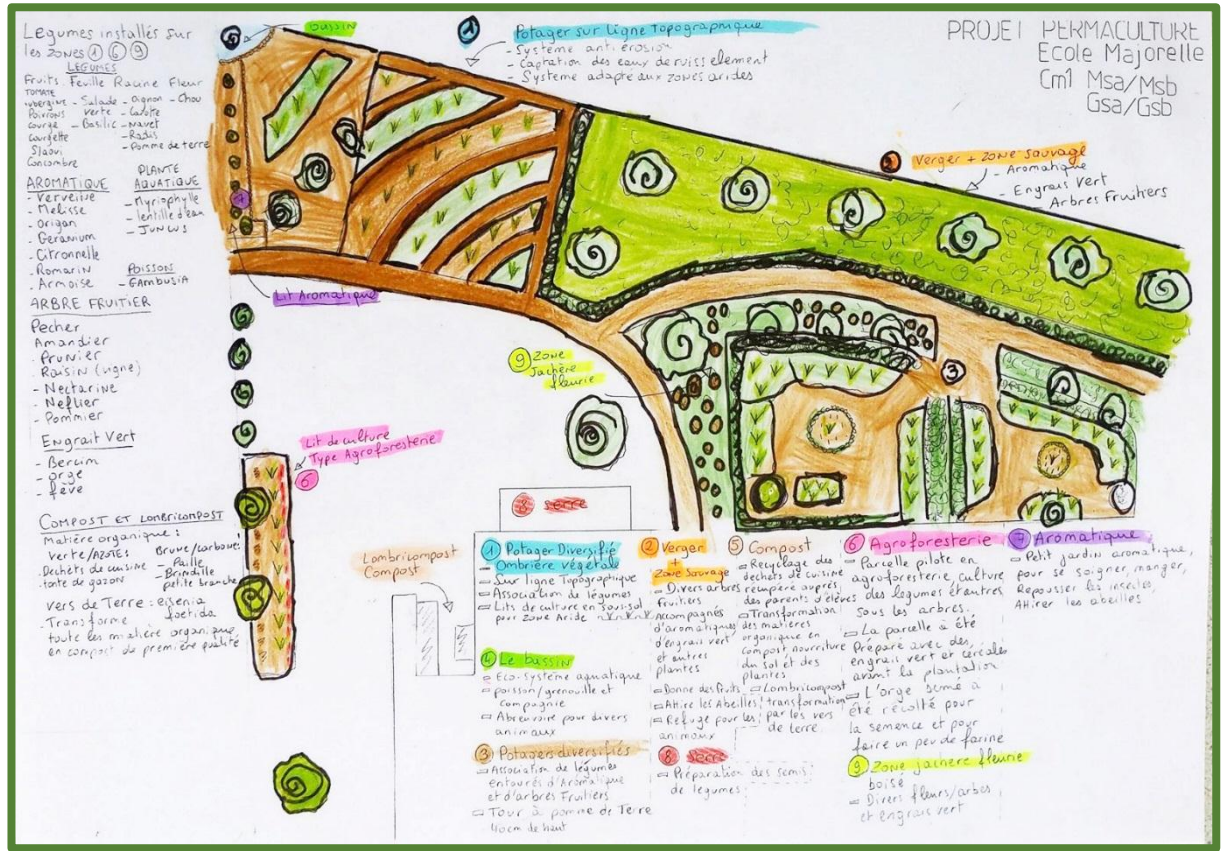 PROJET PERMACULTURE
Ecole Majorelle
Cm1 Msa/Msb
Gsa/Gsb
Legumes installés sur
les zones ① ⑥ ⑨
LEGUMES
Fruits Feuille Racine Fleur
TOMATE
Aubergine - Salade - oignon - Chou
Poivrons verte - Carotte
Courge - Basilic - navet
Courgette - Radis
Slaoui - Pomme de terre
Concombre
AROMATIQUE
- Verveine
- Melisse
- Origan
- Geranium
- Citronnelle
- Romarin
- Armoise
PLANTE
AQUATIQUE
- Myriophylle
- lentille d'eau
- JUNCUS
POISSONS
- GAMBUSIA
ARBRE FRUITIER
Pecher
Amandier
- Prunier
- Raisin (vigne)
- Nectarine
- Neflier
- Pommier
Engrait Vert
- Bercim
- orge
- fève
COMPOST ET LOMBRICOMPOST
Matière organique :
verte/AZOTE:
Dechets de cuisine
tonte de gazon
Brune/carbone:
- Paille
- Brindille
petite branche
vers de Terre : eisenia
foetida
- Transforme
toute les matière organique
en compost de première qualité
Bassin
① Potager sur ligne Topographique
- Système anti erosion
- Captation des eaux de ruissellement
- Système adapte aux zones arides
② Verger + zone sauvage
- Aromatique
- Engrais Vert
Arbres Fruitiers
⑦
Lit Aromatique
⑨ Zone
Jachère
fleurie
③
Lit de culture
Type Agroforesterie
⑥
⑧ serre
Lombricompost
Compost
① Potager Diversifié
Ombrière végétale
- Sur ligne Topographique
- Association de légumes
- Lits de culture en sous-sol
pour zone Aride
④ Le bassin
Eco-système aquatique
poisson/grenouille et
compagnie
Abreuvoire pour divers
animaux
③ Potagers diversifiés
Association de légumes
entourés d'Aromatique
et d'arbres Fruitiers
Tour à pomme de Terre
de haut
② Verger
+
Zone Sauvage
- Divers arbres
fruitiers
Accompagnés
d'aromatiques
d'engrais vert
et autres
plantes
Donne des fruits
Attire les Abeilles
Refuge pour les
animaux
⑧ serre
Préparation des semis
de legumes
⑤ Compost
Recyclage des
déchets de cuisine
récupéré auprés
des parents d'élèves
Transformation
des matières
organique en
compost nourriture
du sol et des
plantes
Lombricompost
transformation
par les vers
de terre
⑥ Agroforesterie
- Parcelle pilote en
agroforesterie, culture
des legumes
sous les arbres.
La parcelle à été
Préparé avec des
engrais vert et céréales
avant la plantation
L'orge semé a
été récolté pour
la semence et pour
faire un peu de farine
⑨ Zone jachere fleurie
boisé
Divers fleurs/arbes
et engrais vert
⑦ Aromatique
Petit jardin aromatique,
pour se soigner, manger,
Repousser les insectes,
Attirer les abeilles